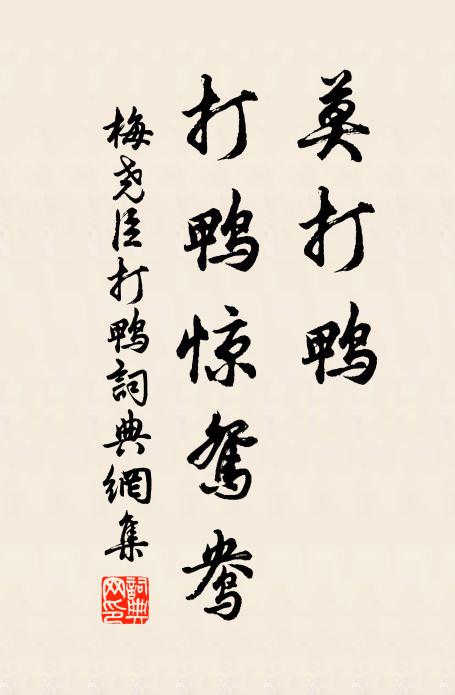 莫打鸭
打鸭惊鸳鸯
梅尧臣打鸭詞典網集
詞典
网印